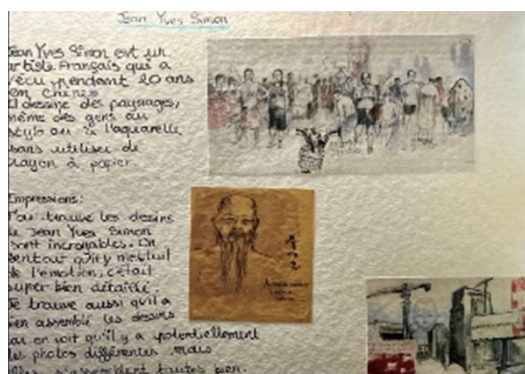 Jean Yves Simon
Jean Yves Simon est un
artiste Français qui a
vécu pendant 20 ans
en Chine.
Il dessine des paysages,
même des gens au
stylo ou à l'aquarelle
sans utiliser de
crayon à papier.
Impressions:
J'ai trouvé les dessins
de Jean Yves Simon
sont incroyables. On
sentait qu'il y mettait
de l'émotion, c'était
super bien détaillé.
Je trouve aussi qu'il a
bien assemblé les dessins
car on voit qu'il y a potentiellement
les photos différentes mais
elles s'assemblent toutes bien.